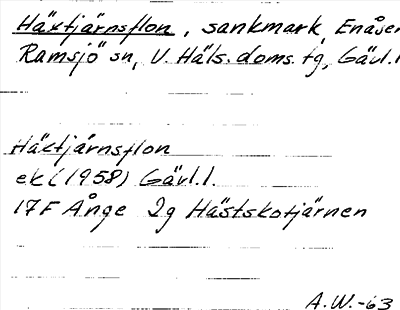 Häxtjärnsflon, sankmark, Enåsen
Ramsjö sn, V. Häls. doms. tg, Gävl.l
Häxtjärnsflon
ek (1958) Gävl.l.
17F Ånge 2g Hästskotjärnen
A.W.-63